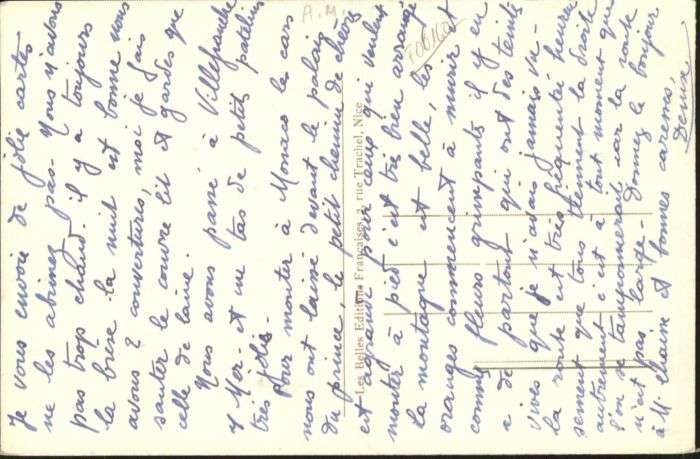 Je vous envoie de jolie cartes
ne les abimez pas. Nous n'avons
pas trop chaud il y a toujours
la brise la nuit est bonne nous
avons 2 couvertures, moi je fais
sauter le couvre lit et gardes que
celle de laine.
Nous avons passé à Villefranche
s/ Mer. et un tas de petits patelins
très jolis.
Pour monter à Monaco les cars
nous ont laissé devant le palais
du prince, le petit chemin de chevs
est agrandi pour ceux qui veulent
monter à pied c'est très bien arrangé
La montagne est belle, les
oranges commencent à murir et
comme fleurs grimpants il y en
a de partout qui ont des teintes
vives que je n'avais jamais vu
la route est très fréquenté, heureu
sement que tous tiennent la droite
autrement c'est à tout moment que
l'on se tamponnerait car la route
n'est pas large. Donnez le bonjour
à M. Chaine et bonnes caresses,
Denise
Les Belles Editions Françaises, 2, rue Trachel, Nice
A.M.